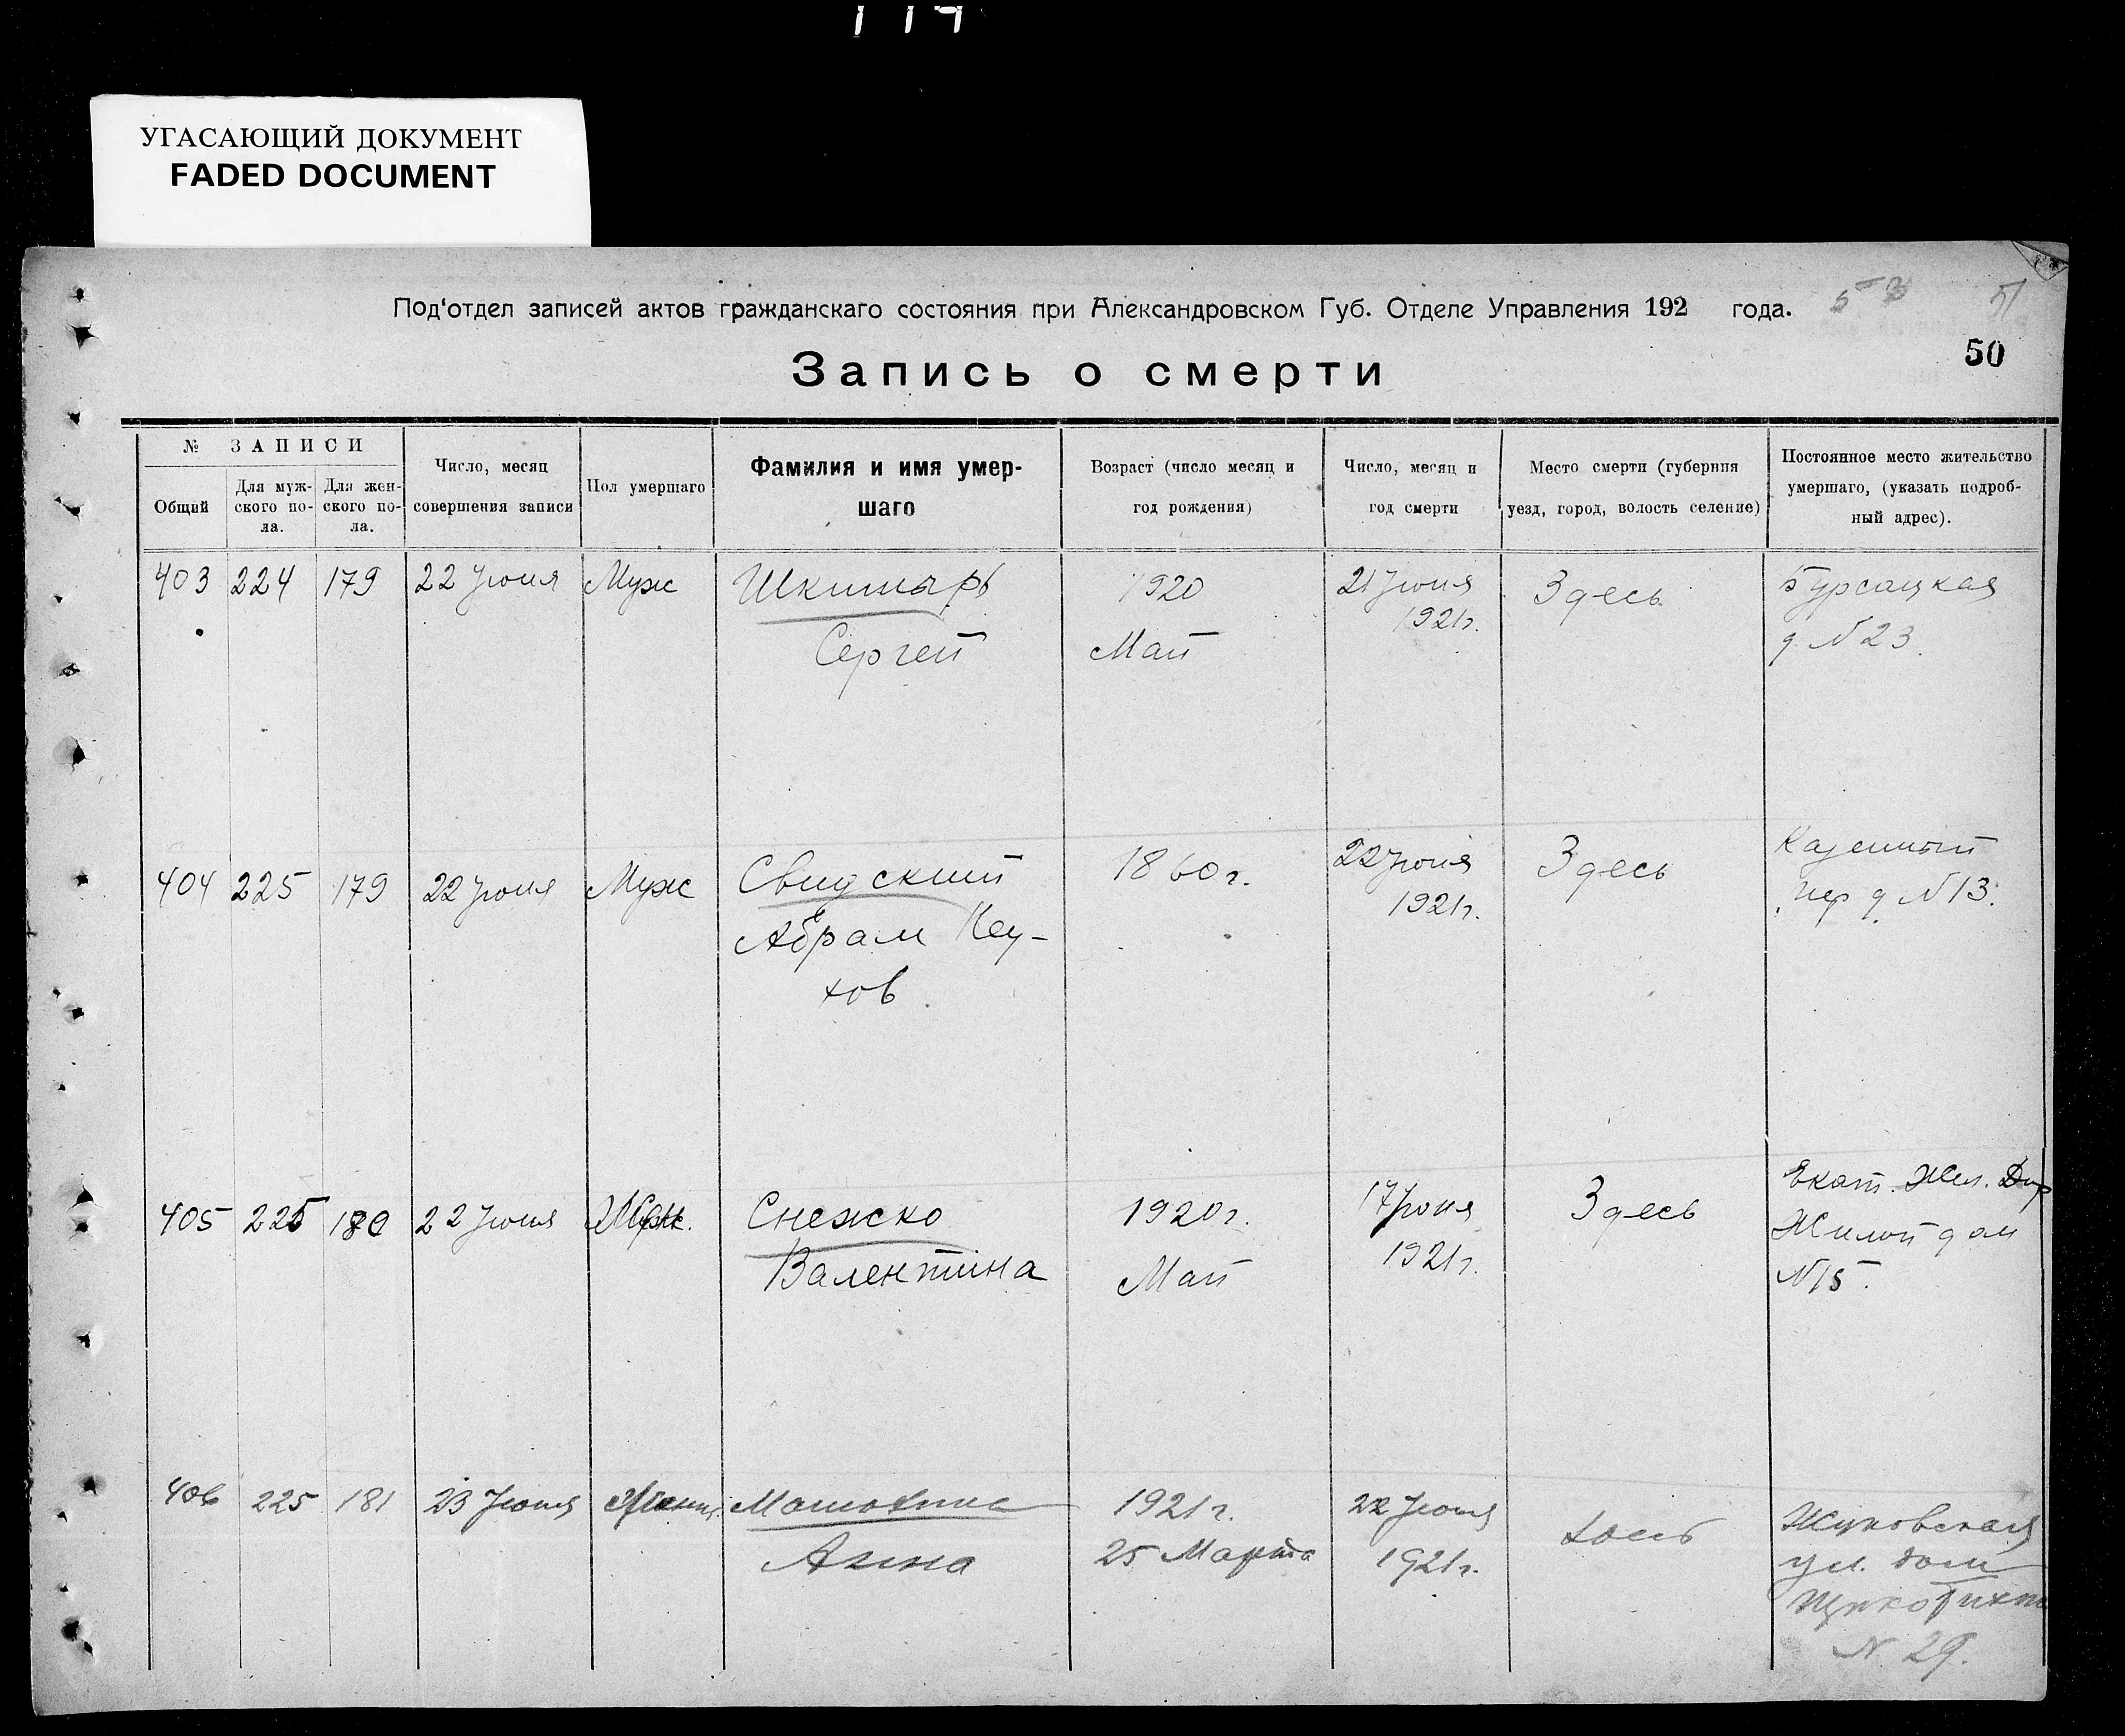 УГАСАЮЩИЙ ДОКУМЕНТ
FADED DOCUMENT
Под'отдел записей актов гражданскаго состояния при Александровском Губ. Отделе Управления 192 года.
51
50
Запись о смерти
№ ЗАПИСИ
Общий
Для муж-
ского по-
ла.
Для жен-
ского по-
ла.
Число, месяц
совершения записи
Пол умершаго
Фамилия и имя умер-
шаго
Возраст (число месяц и
год рождения)
Число, месяц и
год смерти
Место смерти (губерния
уезд, город, волость селение)
Постоянное место жительство
умершаго, (указать подроб-
ный адрес).
403 224 179 22 Июня Муж
Сергей
1920
Май
21 Июня
1921г.
Здесь
Бурсацкая
д N 23.
404 225 179 22 Июня Муж
Свидский
Абрам
1860 г.
22 Июня
1921г.
Здесь
Казенный
пер д. N 13.
405 225 180 22 Июня
Снежко
Валентина
1920г.
Май
17 Июня
1921г.
Здесь
Екат. Жел. Дор
Жилой дом
N 15.
406 225 181 23 Июня
Анна
1921г.
25 Марта
22 Июня
1921г.
Жуковская
ул. дом
N 29.